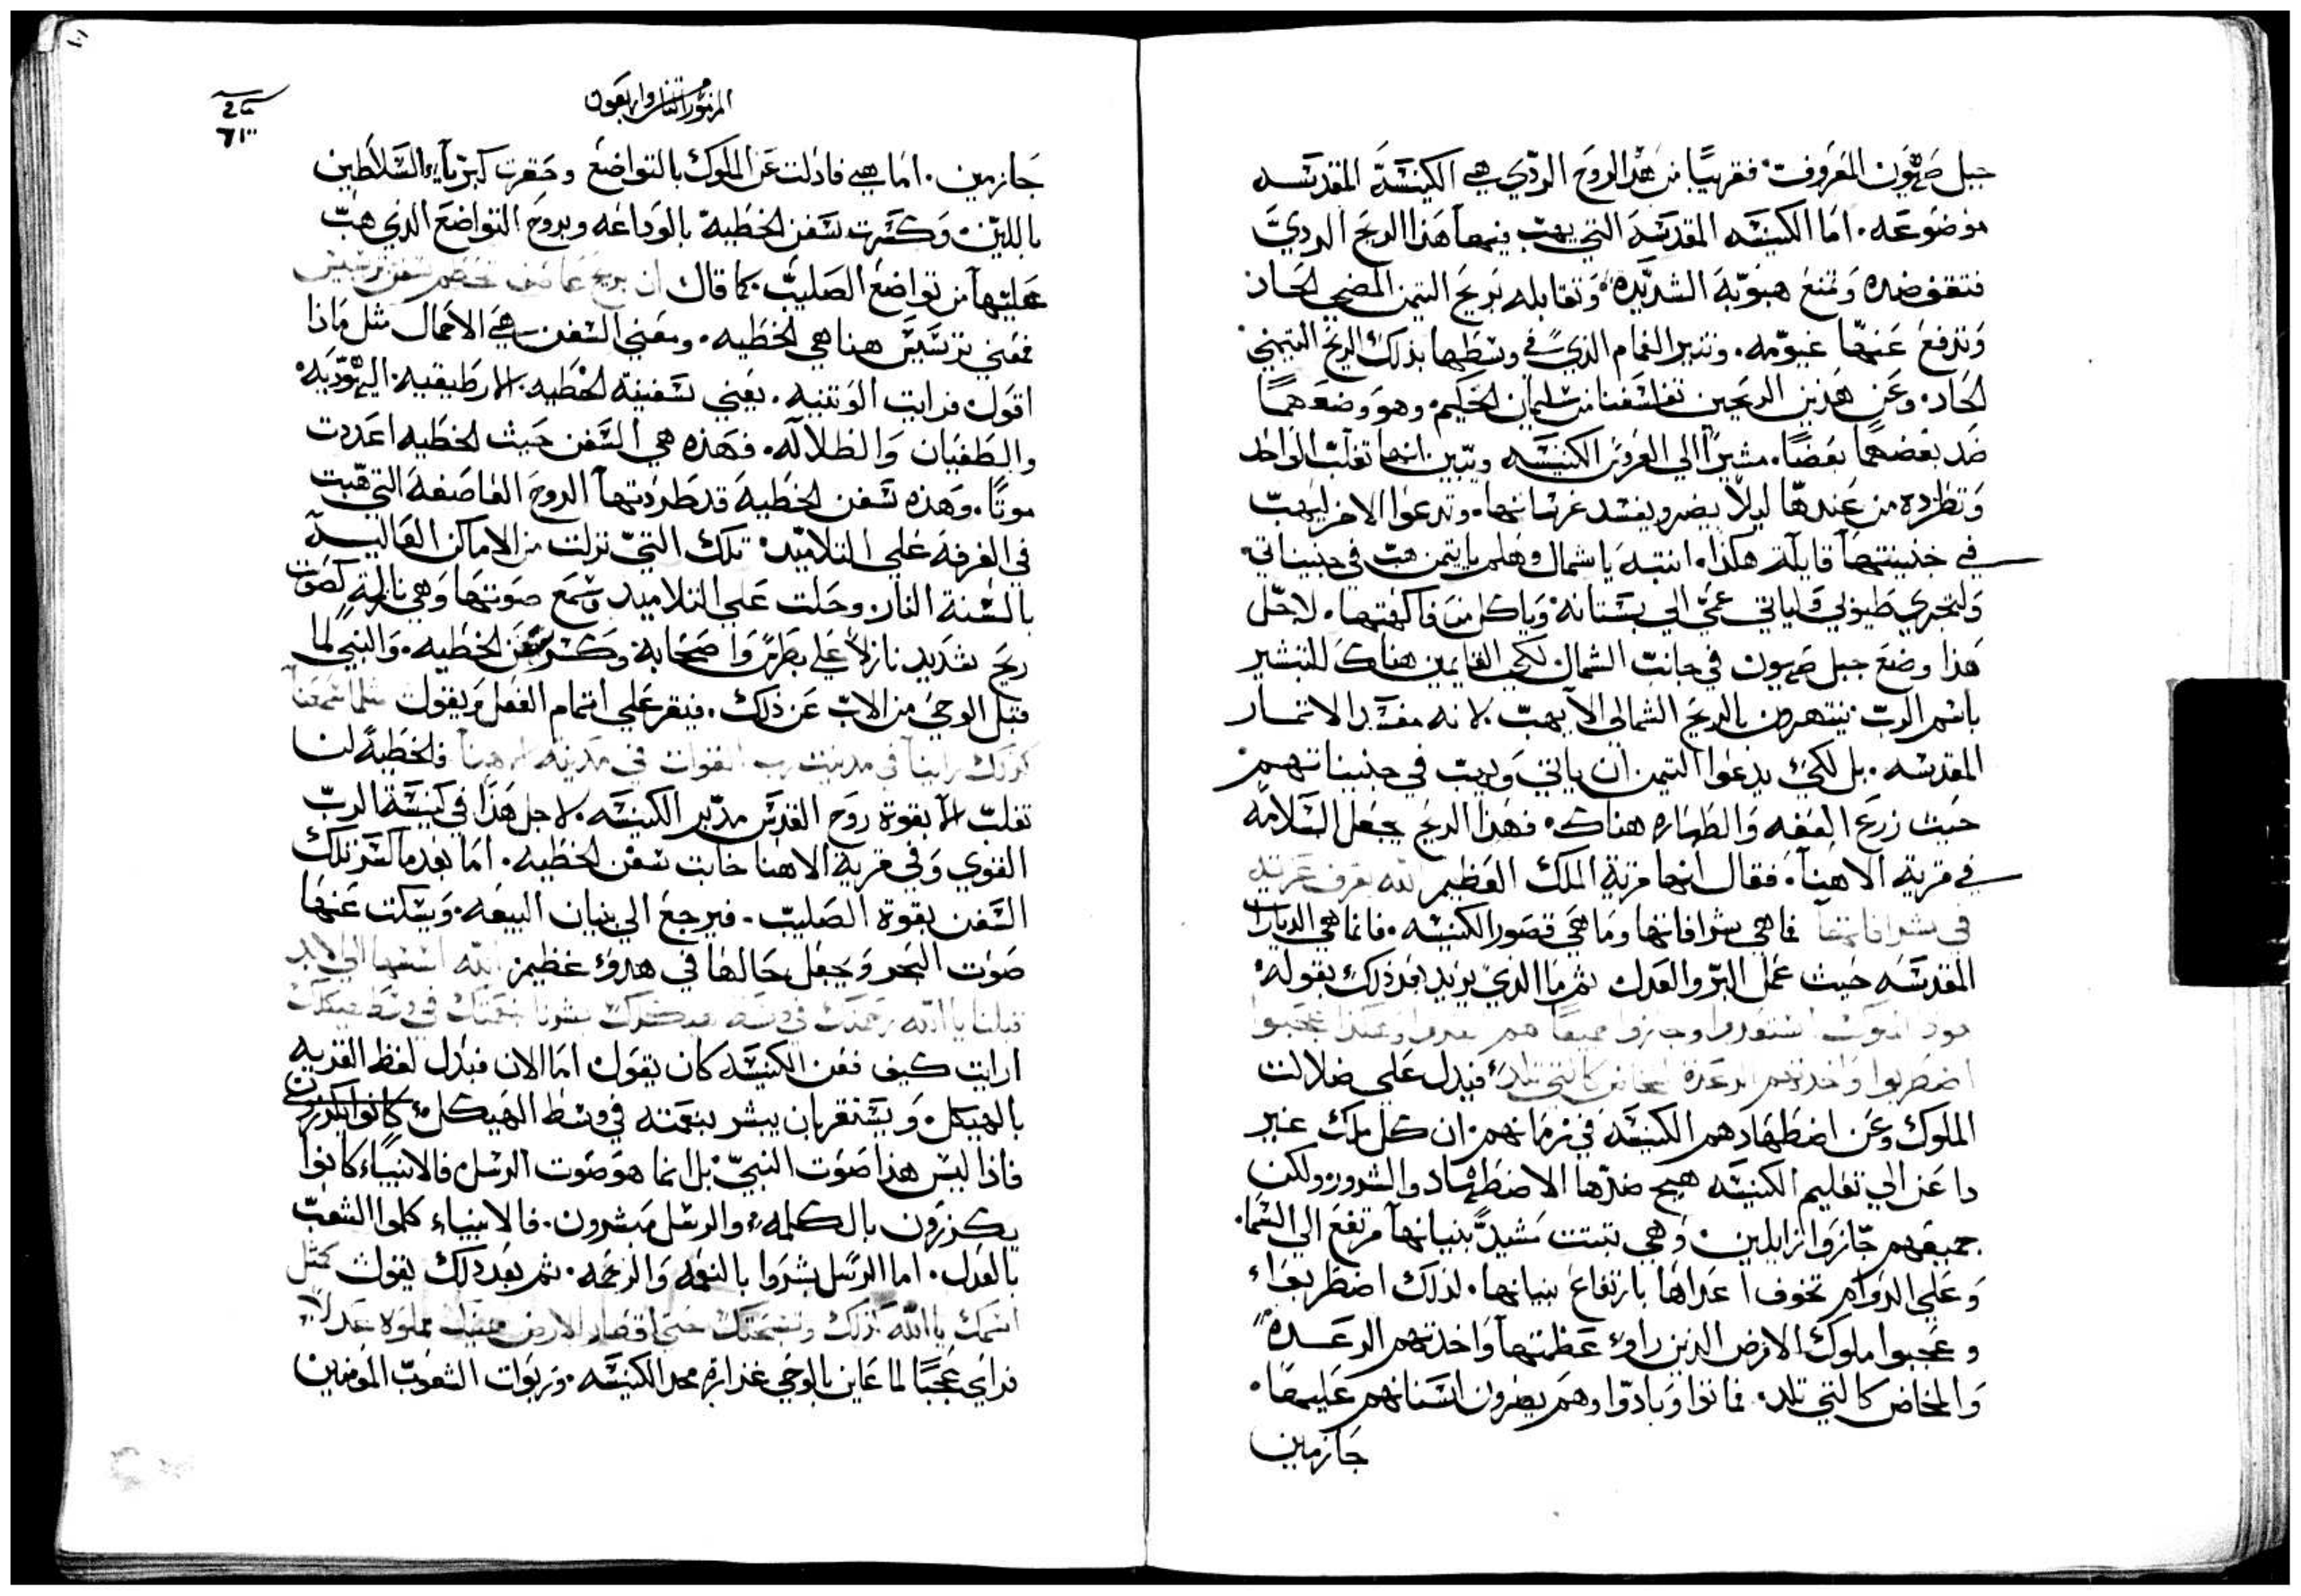 جبل صهيون المعروفت فقريبًا من هذا الروح الردي هي الكنيسة المقدسه
موضوعه. اما الكنيسه المقدسة التي يهب فيها هذا الريح الردي
فتقف ضده وتمنع هبوبه الشديده وتقابله بريح التيمن المضي الحاد
وتدفع عنها غيومه. وتنير الغمام الذي في وسطها بذلك الريح التيمني
الحاد. وعن هذين الريحين تفلسفنا من سليمان الحكيم. وهو وضعهما
ضد بعضهما بعضًا. مشيرًا الي العروس الكنيسه ويبين انها تغلب الواحد
وتطرده من عندها ليلا يضر ويفسد غرسانها. وتدعوا الاخر ليهب
في جنينتها قايلة هكذا. انتبه يا شمال وهلم يا تيمن هب في جنيناتي
ولتجري طيوبي ولياتي عمي الي بستانه وياكل من فاكهتها. لاجل
هذا وضع جبل صهيون في جانب الشمال لكي القايمين هناك للتبشير
باسم الرب ينتهرون بالريح الشمالي الا يهب. لانه مفسد الاتمار
المقدسه. بل لكي يدعوا التيمن ان ياتي ويهب في جنيناتهم
حيث زرع العفه والطهاره هناك. فهذا الريح يجعل السلامه
في قرية الاهنا. فقال انها قرية الملك العظيم الله يعرف
في شرافاتها فما هي شرافاتها وما هي قصور الكنيسه. فانما هي الديارات
المقدسه حيث عمل البر والعدل ثم ما الذي يزيد بعد ذلك بقوله
هوذا الملوك اجتمعوا وجازوا جميعا هم نظروا وهكذا عجبوا
اضطربوا واخذتهم الرعدة المخاض كالتي تلد فيدل علي ضلالت
الملوك وعن اضطهادهم الكنيسه في زمانهم. ان كل ملك غير
داعن الي تعليم الكنيسه هيج ضدها الاضطهاد والشرور ولكن
جميعهم جازوا زايلين. وهي تبتت مشيد بنيانها مرتفع الي السما.
وعلي الدوام تخوف اعداها بارتفاع بنيانها. لذلك اضطربوا
وعجبوا ملوك الارض الذين راوا عظمتها واخذتهم الرعده
والمخاض كالتي تلد. فماتوا وبادوا وهم يصرون اسنانهم عليها.
جازمين
المزمور السابع واربعون
جازمين. اما هي فاذلت عز الملوك بالتواضع وحقرت كبرياء السلاطين
باللين. وكسرت سفن الخطية بالوداعه وبروح التواضع الذي هب
عليها من تواضع الصليب. كما قال ان بريح عاصف تحطم سفن ترسيس
فمعني ترسيس هنا هي الخطيه. ومعني السفن هي الاعمال مثل ماذا
اقول. فرايت الوتنيه. يعني سفينة الخطيه. الارطيقيه. اليهوديه
والطغيان والظلاله. فهذه هي السفن حيث الخطيه اعددت
موتًا. وهذه سفن الخطية قد طردتها الروح العاصفة التي هبت
في الغرفة علي التلاميد. تلك التي نزلت من الاماكن العاليه
بالسنة النار وحلت علي التلاميد وسمع صوتها وهي نازلة كصوت
ريح شديد نازلاً علي بطرس واصحابه وكسر سفن الخطيه. والنبي لما
قبل الوحي من الاب عن ذلك. فيقر علي اتمام الفعل ويقول مثلما سمعنا
كذلك راينا في مدينت رب القوات في مدينة الاهنا فالخطية لنا
تغلب الا بقوة روح القدس مدبر الكنيسه. لاجل هذا في كنيسة الرب
القوي وفي قرية الاهنا خابت سفن الخطيه. اما بعد ما كسر تلك
السفن بقوة الصليب. فيرجع الي بنيان البيعه. ويسكت عنها
صوت البحر وجعل حالها في هدوء عظيم الله اسسها الي الابد
قبلنا يا الله رحمتك في وسط هيكلك
ارايت كيف فعن الكنيسه كان يقول. اما الان فبدل لفظ القريه
بالهيكل. ويستقر بان يبشر بنعمته في وسط الهيكل
فاذا ليس هذا صوت النبي. بل انما هو صوت الرسل. فالانبياء كانوا
يكرزون بالكلمه. والرسل مبشرون. فالانبياء كلموا الشعب
بالعدل. اما الرسل بشروا بالنعمه والرحمه. ثم بعد ذلك يقول كمثل
اسمك يا الله كذلك وتسبحتك حتي اقصار الارض يمينك مملوه عدلاً
فراي عجبًا لما عاين بالوحي غزارة مجد الكنيسه. وربوات الشعوب المومنين